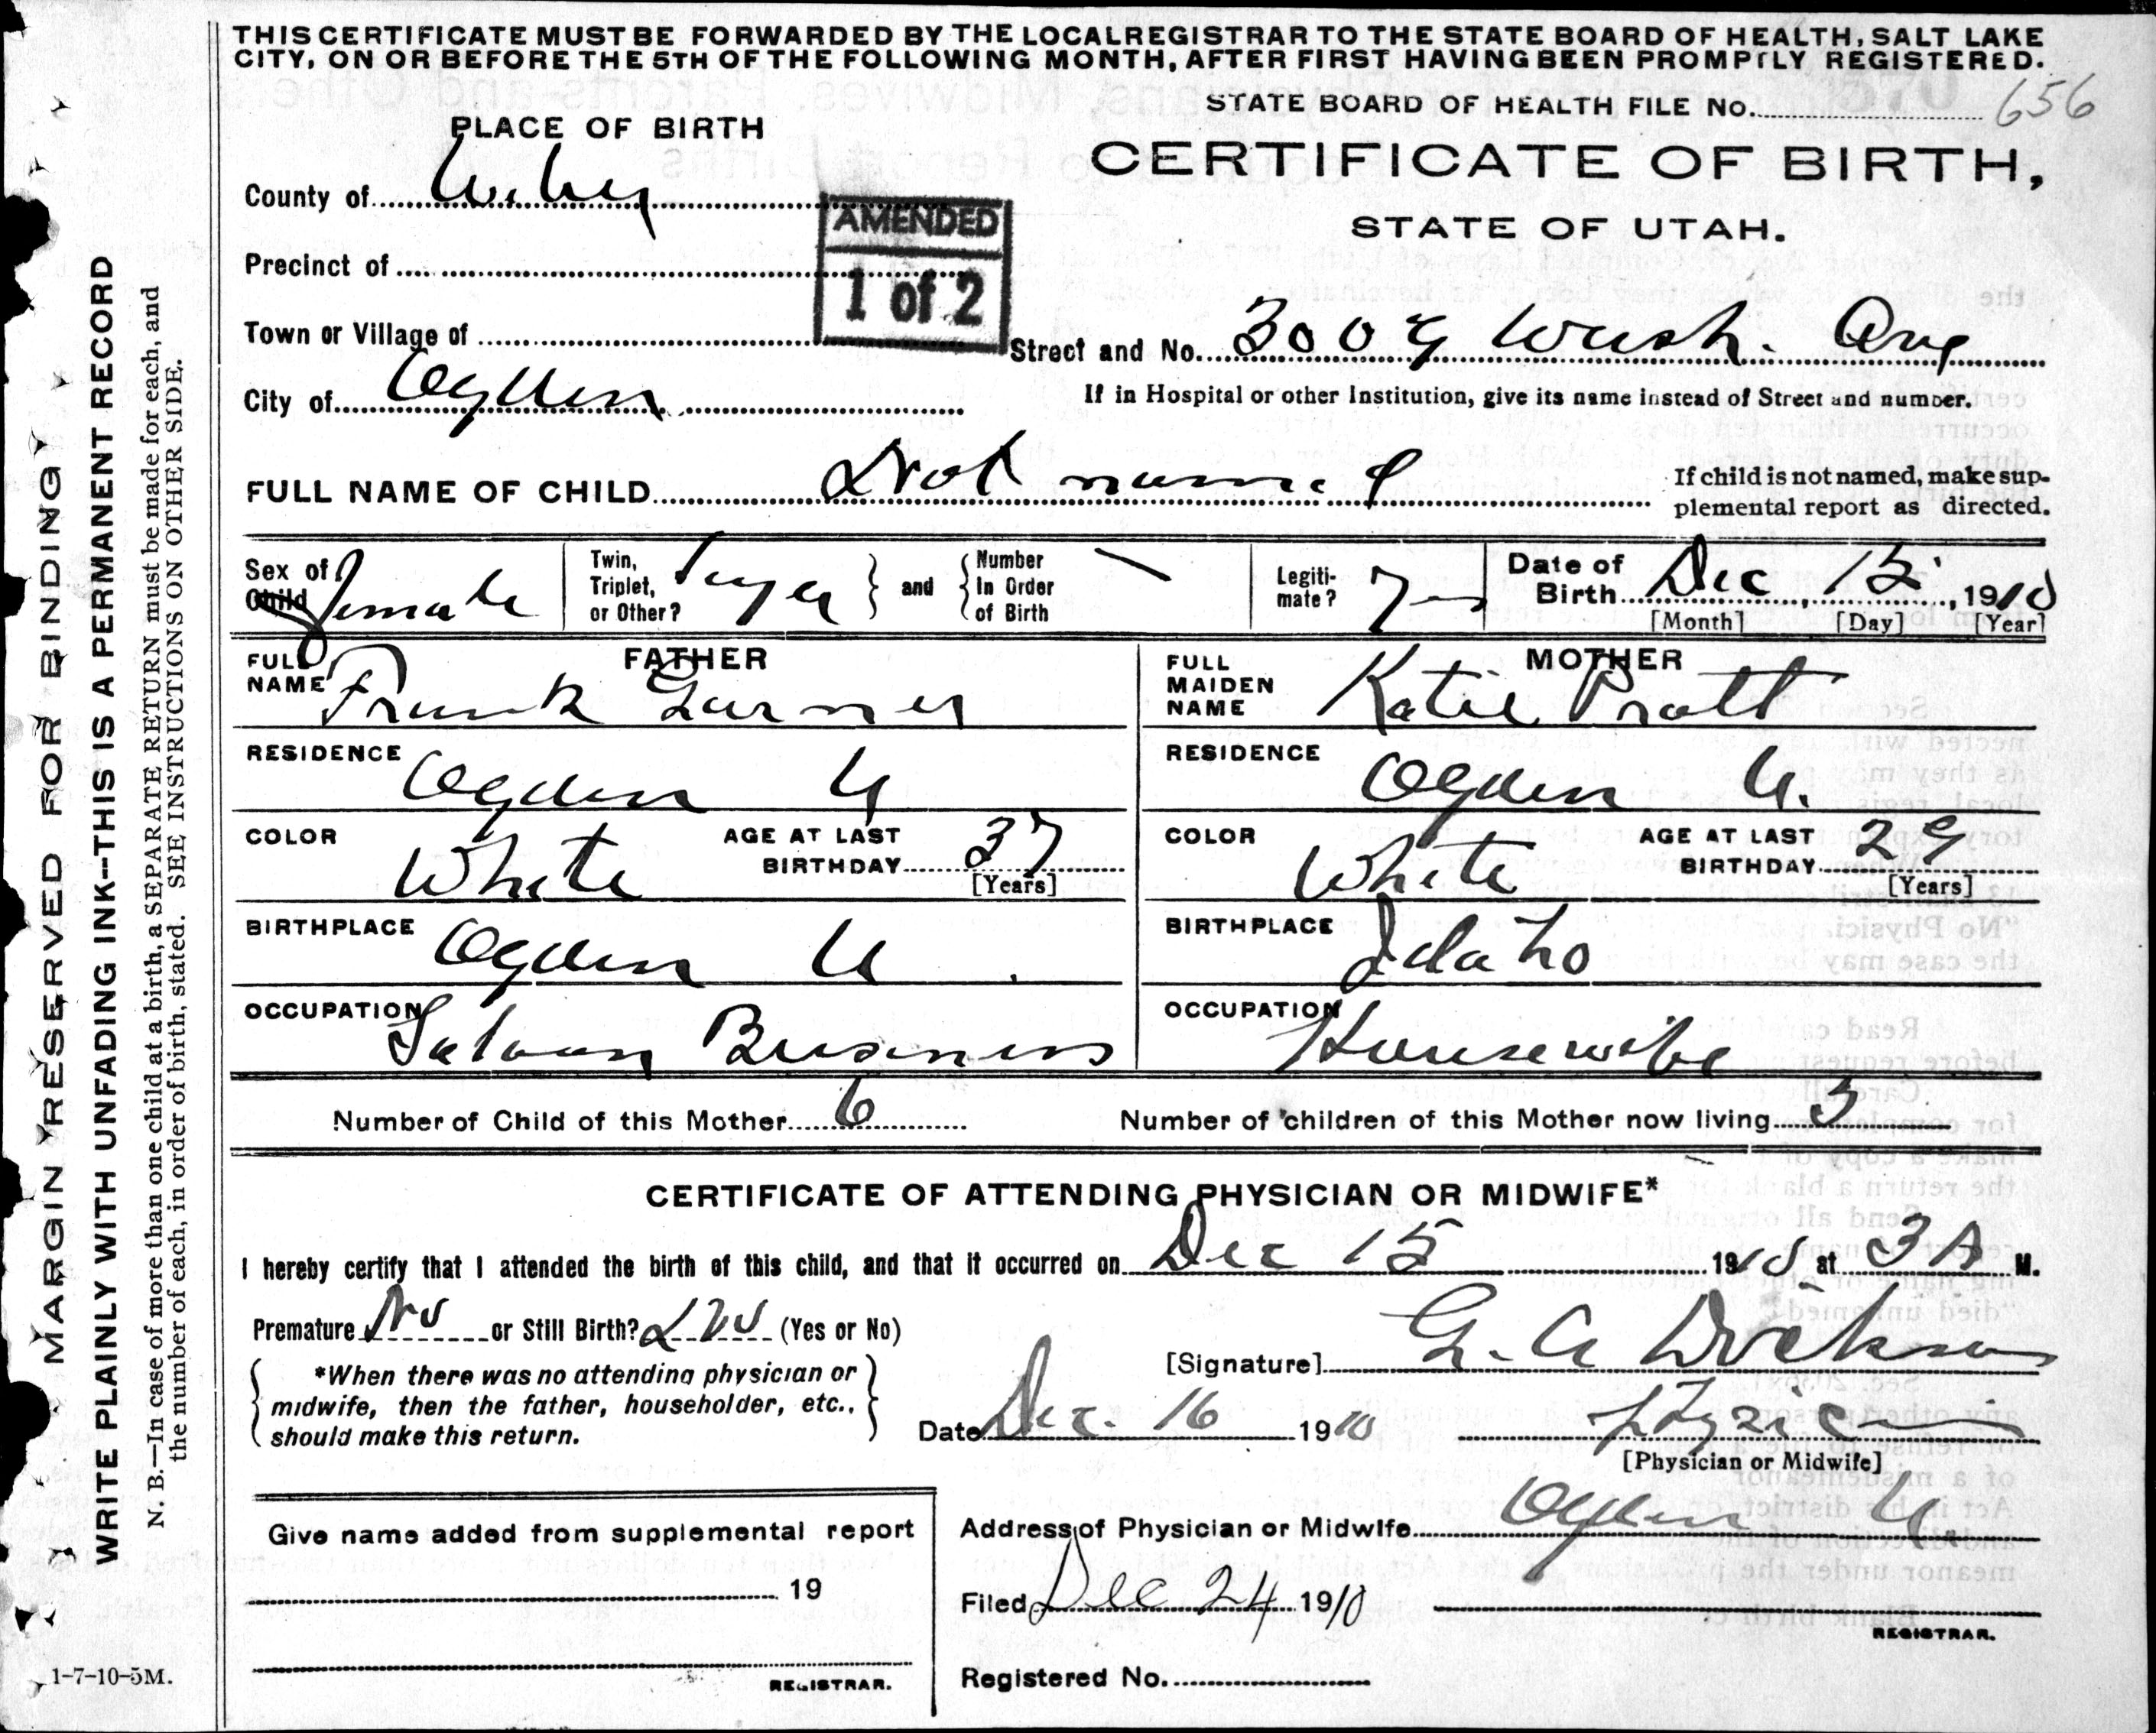 THIS CERTIFICATE MUST BE FORWARDED BY THE LOCAL REGISTRAR TO THE STATE BOARD OF HEALTH, SALT LAKE
CITY, ON OR BEFORE THE 5TH OF THE FOLLOWING MONTH, AFTER FIRST HAVING BEEN PROMPTLY REGISTERED.
STATE BOARD OF HEALTH FILE No. 656
PLACE OF BIRTH
CERTIFICATE OF BIRTH,
STATE OF UTAH.
County of Weber
AMENDED
1 of 2
Precinct of
Town or Village of
Street and No. 3009 Wash. Ave
City of Ogden
If in Hospital or other Institution, give its name instead of Street and number.
FULL NAME OF CHILD Not named
If child is not named, make sup-
plemental report as directed.
Sex of Child Female
Twin, Triplet, or Other?
and Number In Order of Birth
Legiti-mate? Yes
Date of Birth Dec 15, 1910
[Month] [Day] [Year]
FATHER
FULL NAME Frank Garner
RESIDENCE Ogden U
COLOR White
AGE AT LAST BIRTHDAY 37 [Years]
BIRTHPLACE Ogden U
OCCUPATION Saloon Business
MOTHER
FULL MAIDEN NAME Katie Pratt
RESIDENCE Ogden U.
COLOR White
AGE AT LAST BIRTHDAY 29 [Years]
BIRTHPLACE Idaho
OCCUPATION Housewife
Number of Child of this Mother 6
Number of children of this Mother now living 3
CERTIFICATE OF ATTENDING PHYSICIAN OR MIDWIFE*
I hereby certify that I attended the birth of this child, and that it occurred on Dec 15 1910 at 3 A M.
Premature No or Still Birth? No (Yes or No)
*When there was no attending physician or
midwife, then the father, householder, etc.,
should make this return.
[Signature] G. A Dickson
Date Dec. 16 1910
Physician
[Physician or Midwife]
Give name added from supplemental report
19
REGISTRAR.
Address of Physician or Midwife Ogden U.
Filed Dec 24 1910
REGISTRAR.
Registered No.
1-7-10-5M.
MARGIN RESERVED FOR BINDING
WRITE PLAINLY WITH UNFADING INK--THIS IS A PERMANENT RECORD
N. B.—In case of more than one child at a birth, a SEPARATE RETURN must be made for each, and
the number of each, in order of birth, stated. SEE INSTRUCTIONS ON OTHER SIDE.